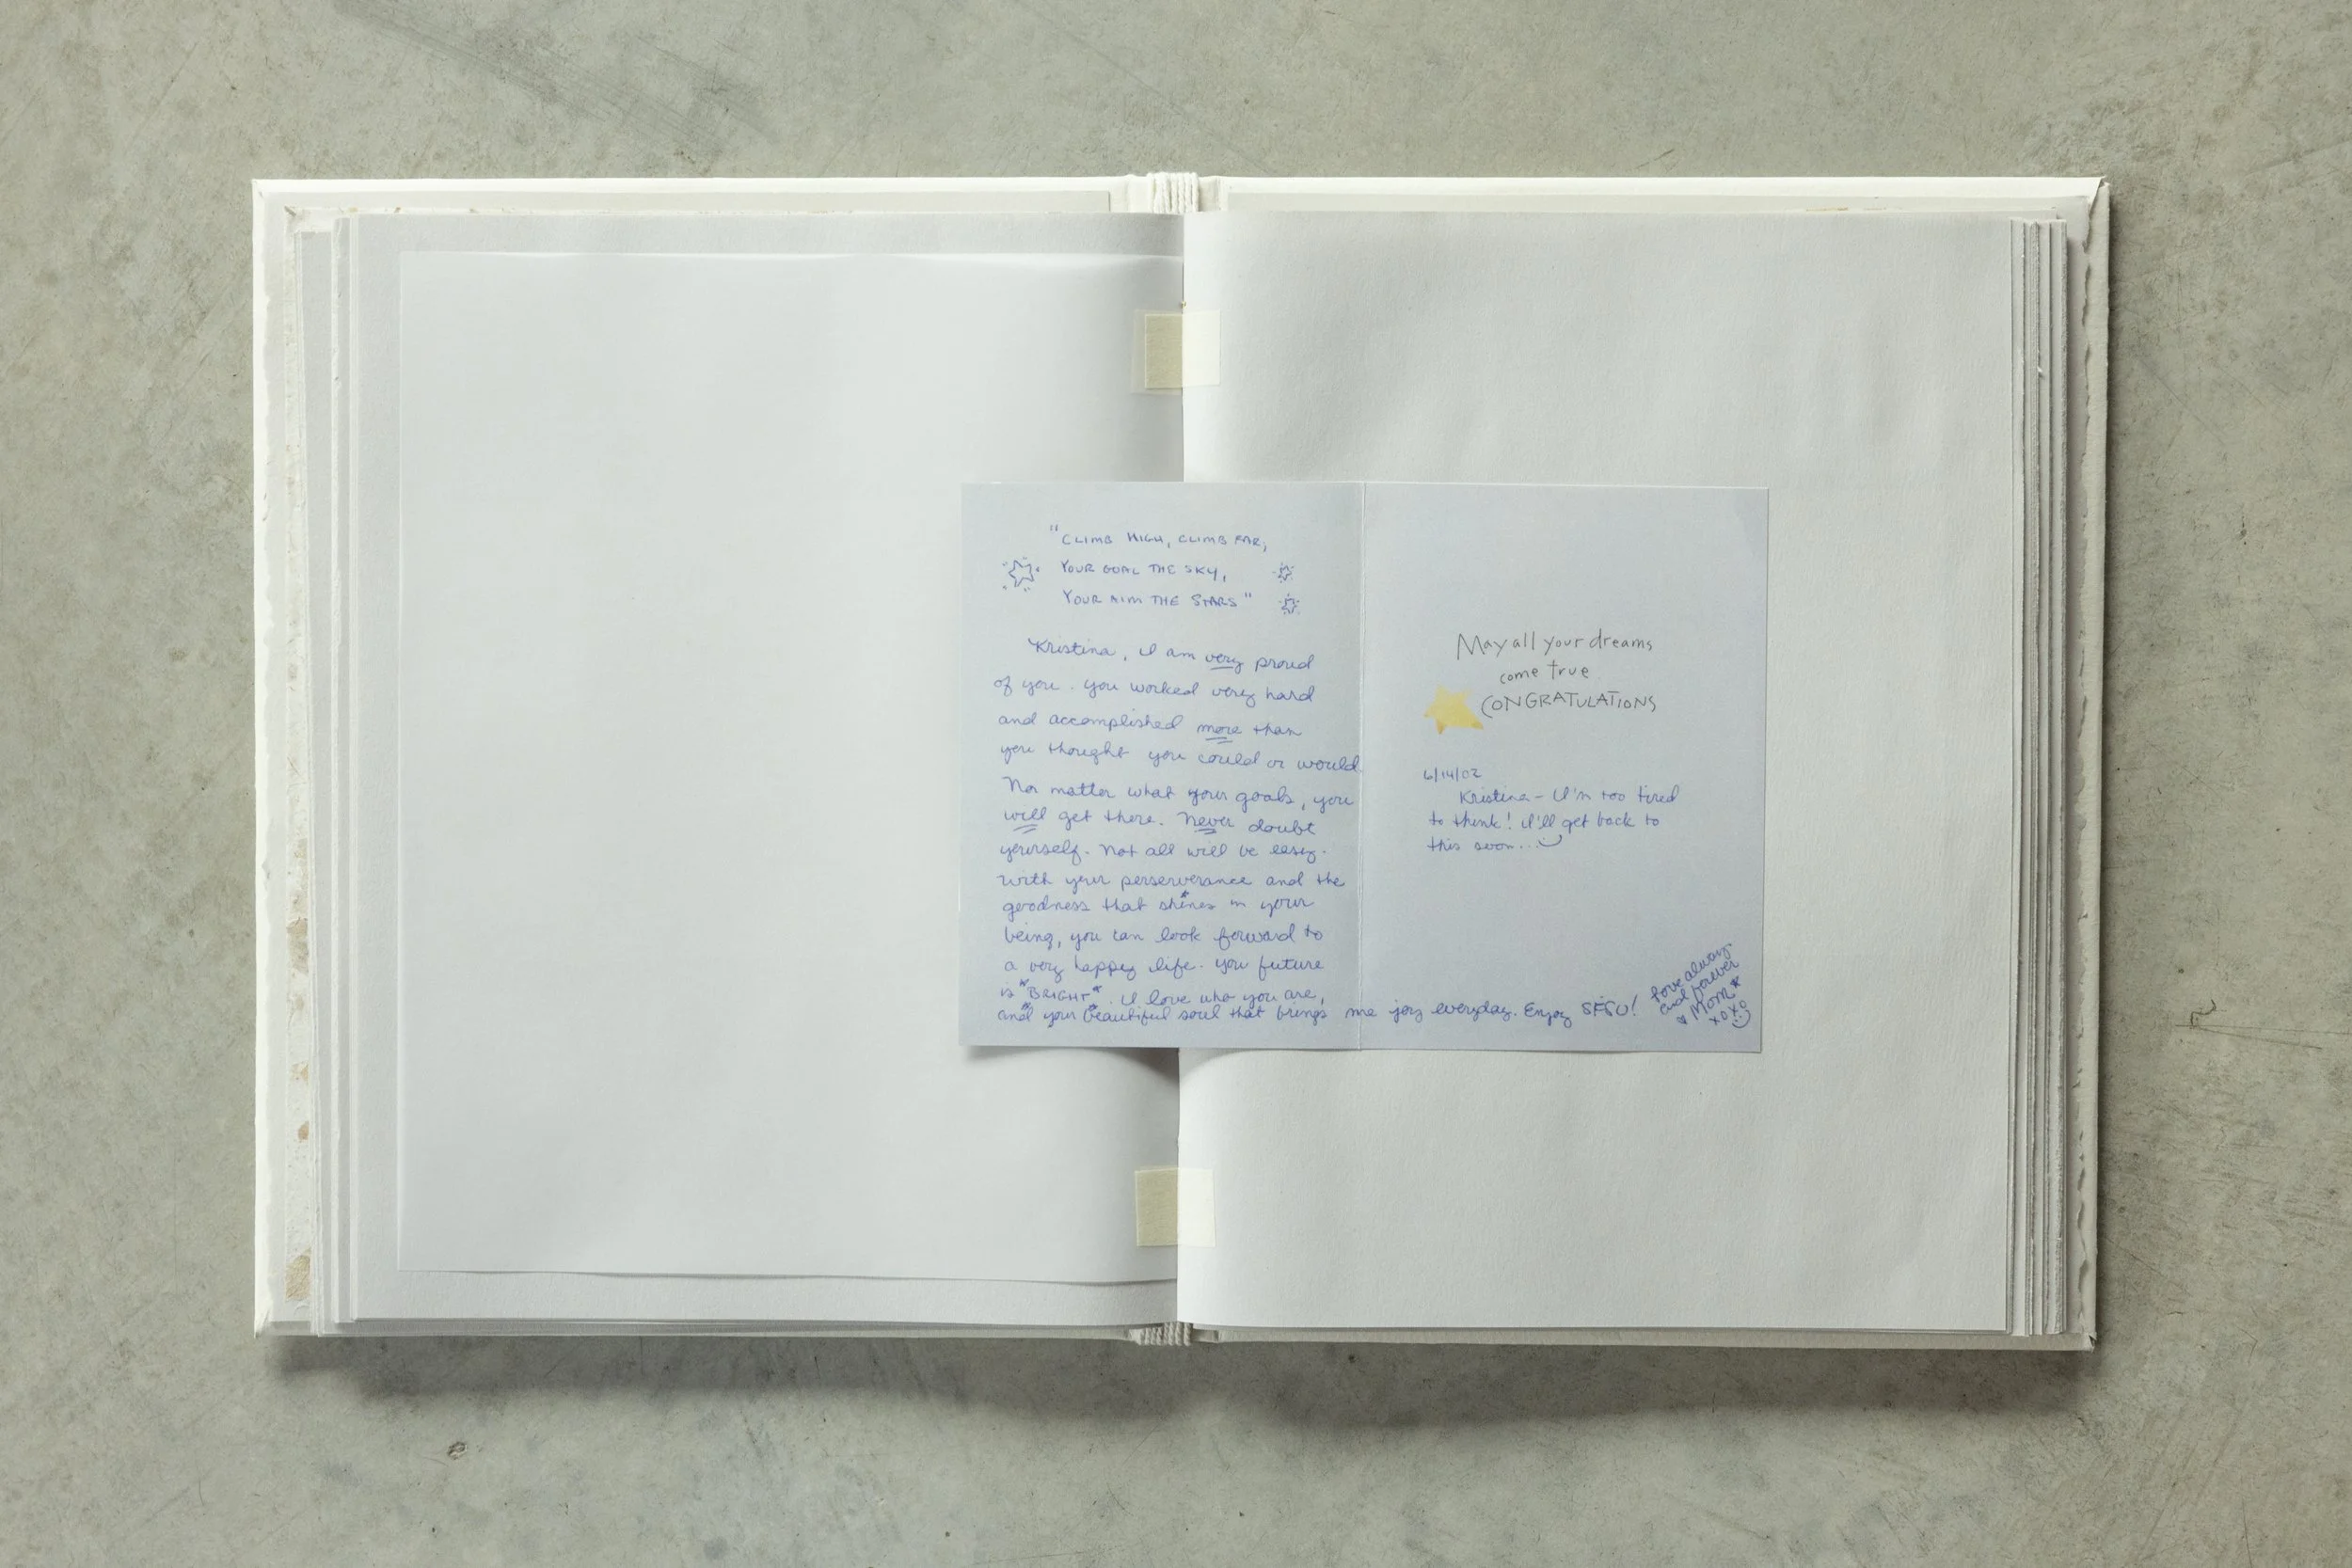 "CLIMB HIGH, CLIMB FAR,
YOUR GOAL THE SKY,
YOUR AIM THE STARS"
Kristina, I am very proud
of you. You worked very hard
and accomplished more than
you thought you could or would.
No matter what your goals, you
will get there. Never doubt
yourself. Not all will be easy.
With your perserverance and the
goodness that shines in your
being, you can look forward to
a very happy life. You future
is *BRIGHT*. I love who you are,
and your beautiful soul that brings me joy everyday. Enjoy SFSU!
May all your dreams
come true
CONGRATULATIONS
6/14/02
Kristina - I'm too tired
to think! I'll get back to
this soon...
Love always
and forever
Mom
xoxo